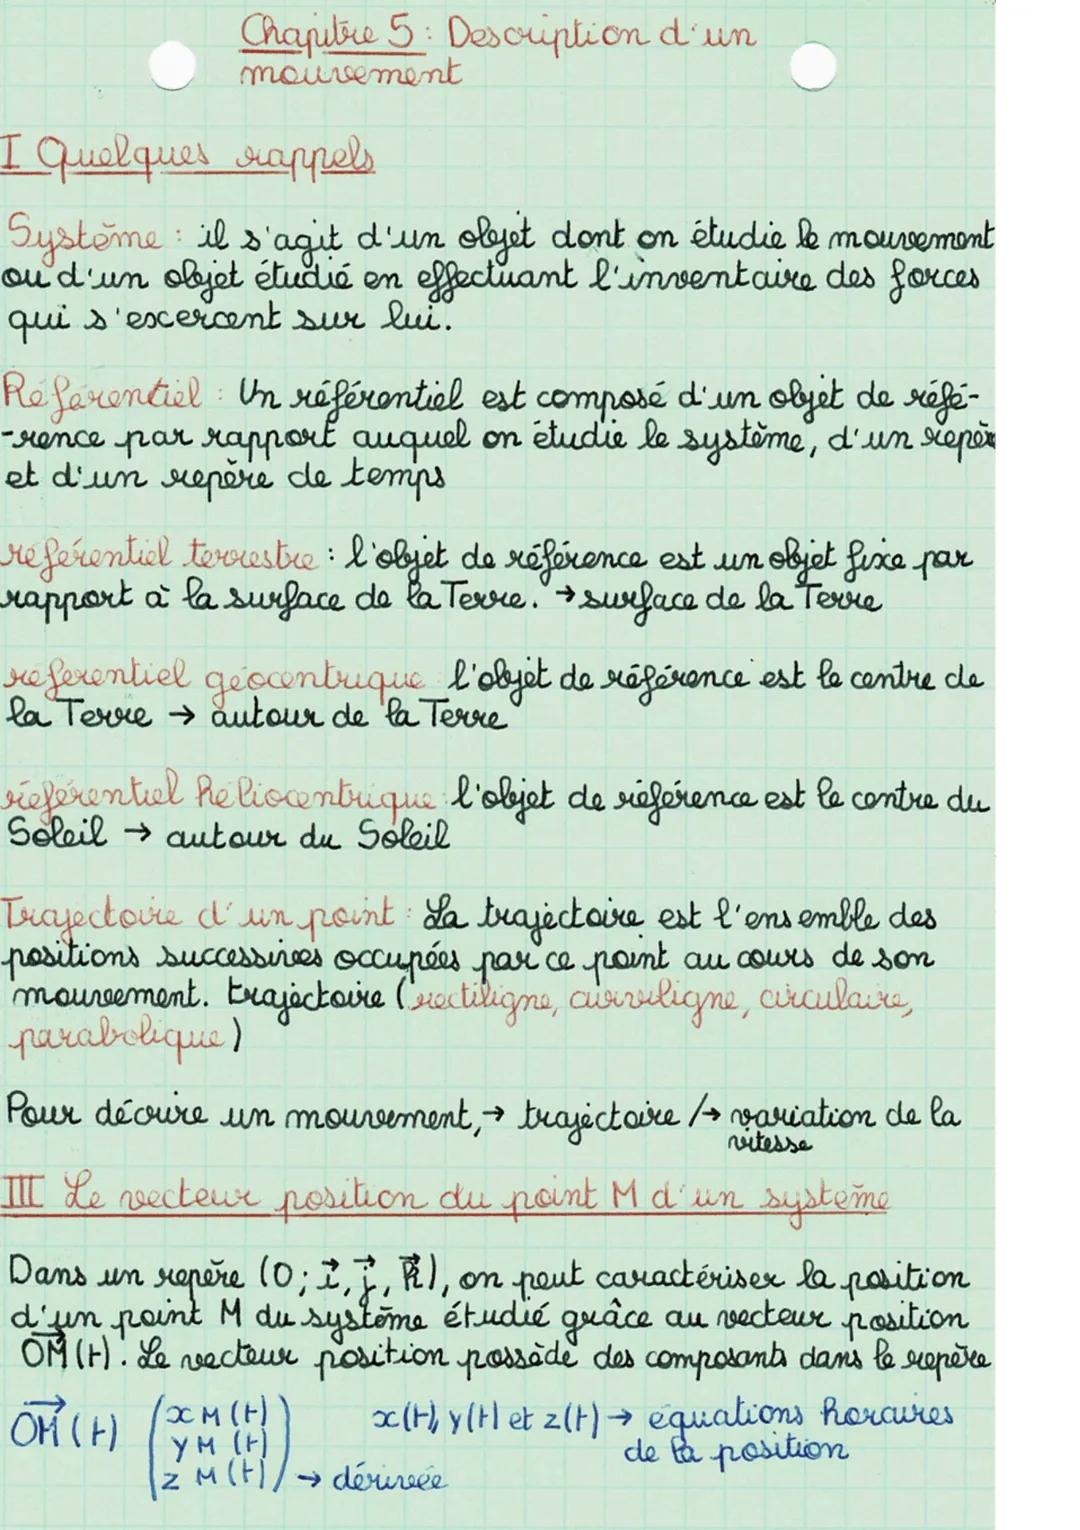 Chapitre 5 : Description d'un
mouvement
I Quelques rappels
Système : il s'agit d'un objet dont on étudie le mouvement
ou d'un objet étudié en effectuant l'inventaire des forces
qui s'exercent sur lui.
Référentiel : Un référentiel est composé d'un objet de réfé-
-rence par rapport auquel on étudie le système, d'un repère
et d'un repère de temps
référentiel terrestre : l'objet de référence est un objet fixe par
rapport à la surface de la Terre. → surface de la Terre
référentiel géocentrique l'objet de référence est le centre de
la Terre → autour de la Terre
référentiel héliocentrique : l'objet de référence est le centre du
Soleil → autour du Soleil
Trajectoire d'un point : La trajectoire est l'ensemble des
positions successives occupées par ce point au cours de son
mouvement. trajectoire (rectiligne, curviligne, circulaire,
parabolique)
Pour décrire un mouvement, → trajectoire /→ variation de la
vitesse
III Le vecteur position du point M d'un système
Dans un repère (O; i⃗, j⃗, k⃗), on peut caractériser la position
d'un point M du système étudié grâce au vecteur position
OM⃗(t). Le vecteur position possède des composants dans le repère
OM⃗(t) (x M (t) x(t), y(t) et z(t) → équations horaires
y M (t) de la position
z M (t)) → dérivée